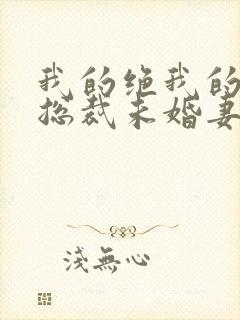 我的绝我的
总裁未婚妻
浅無心